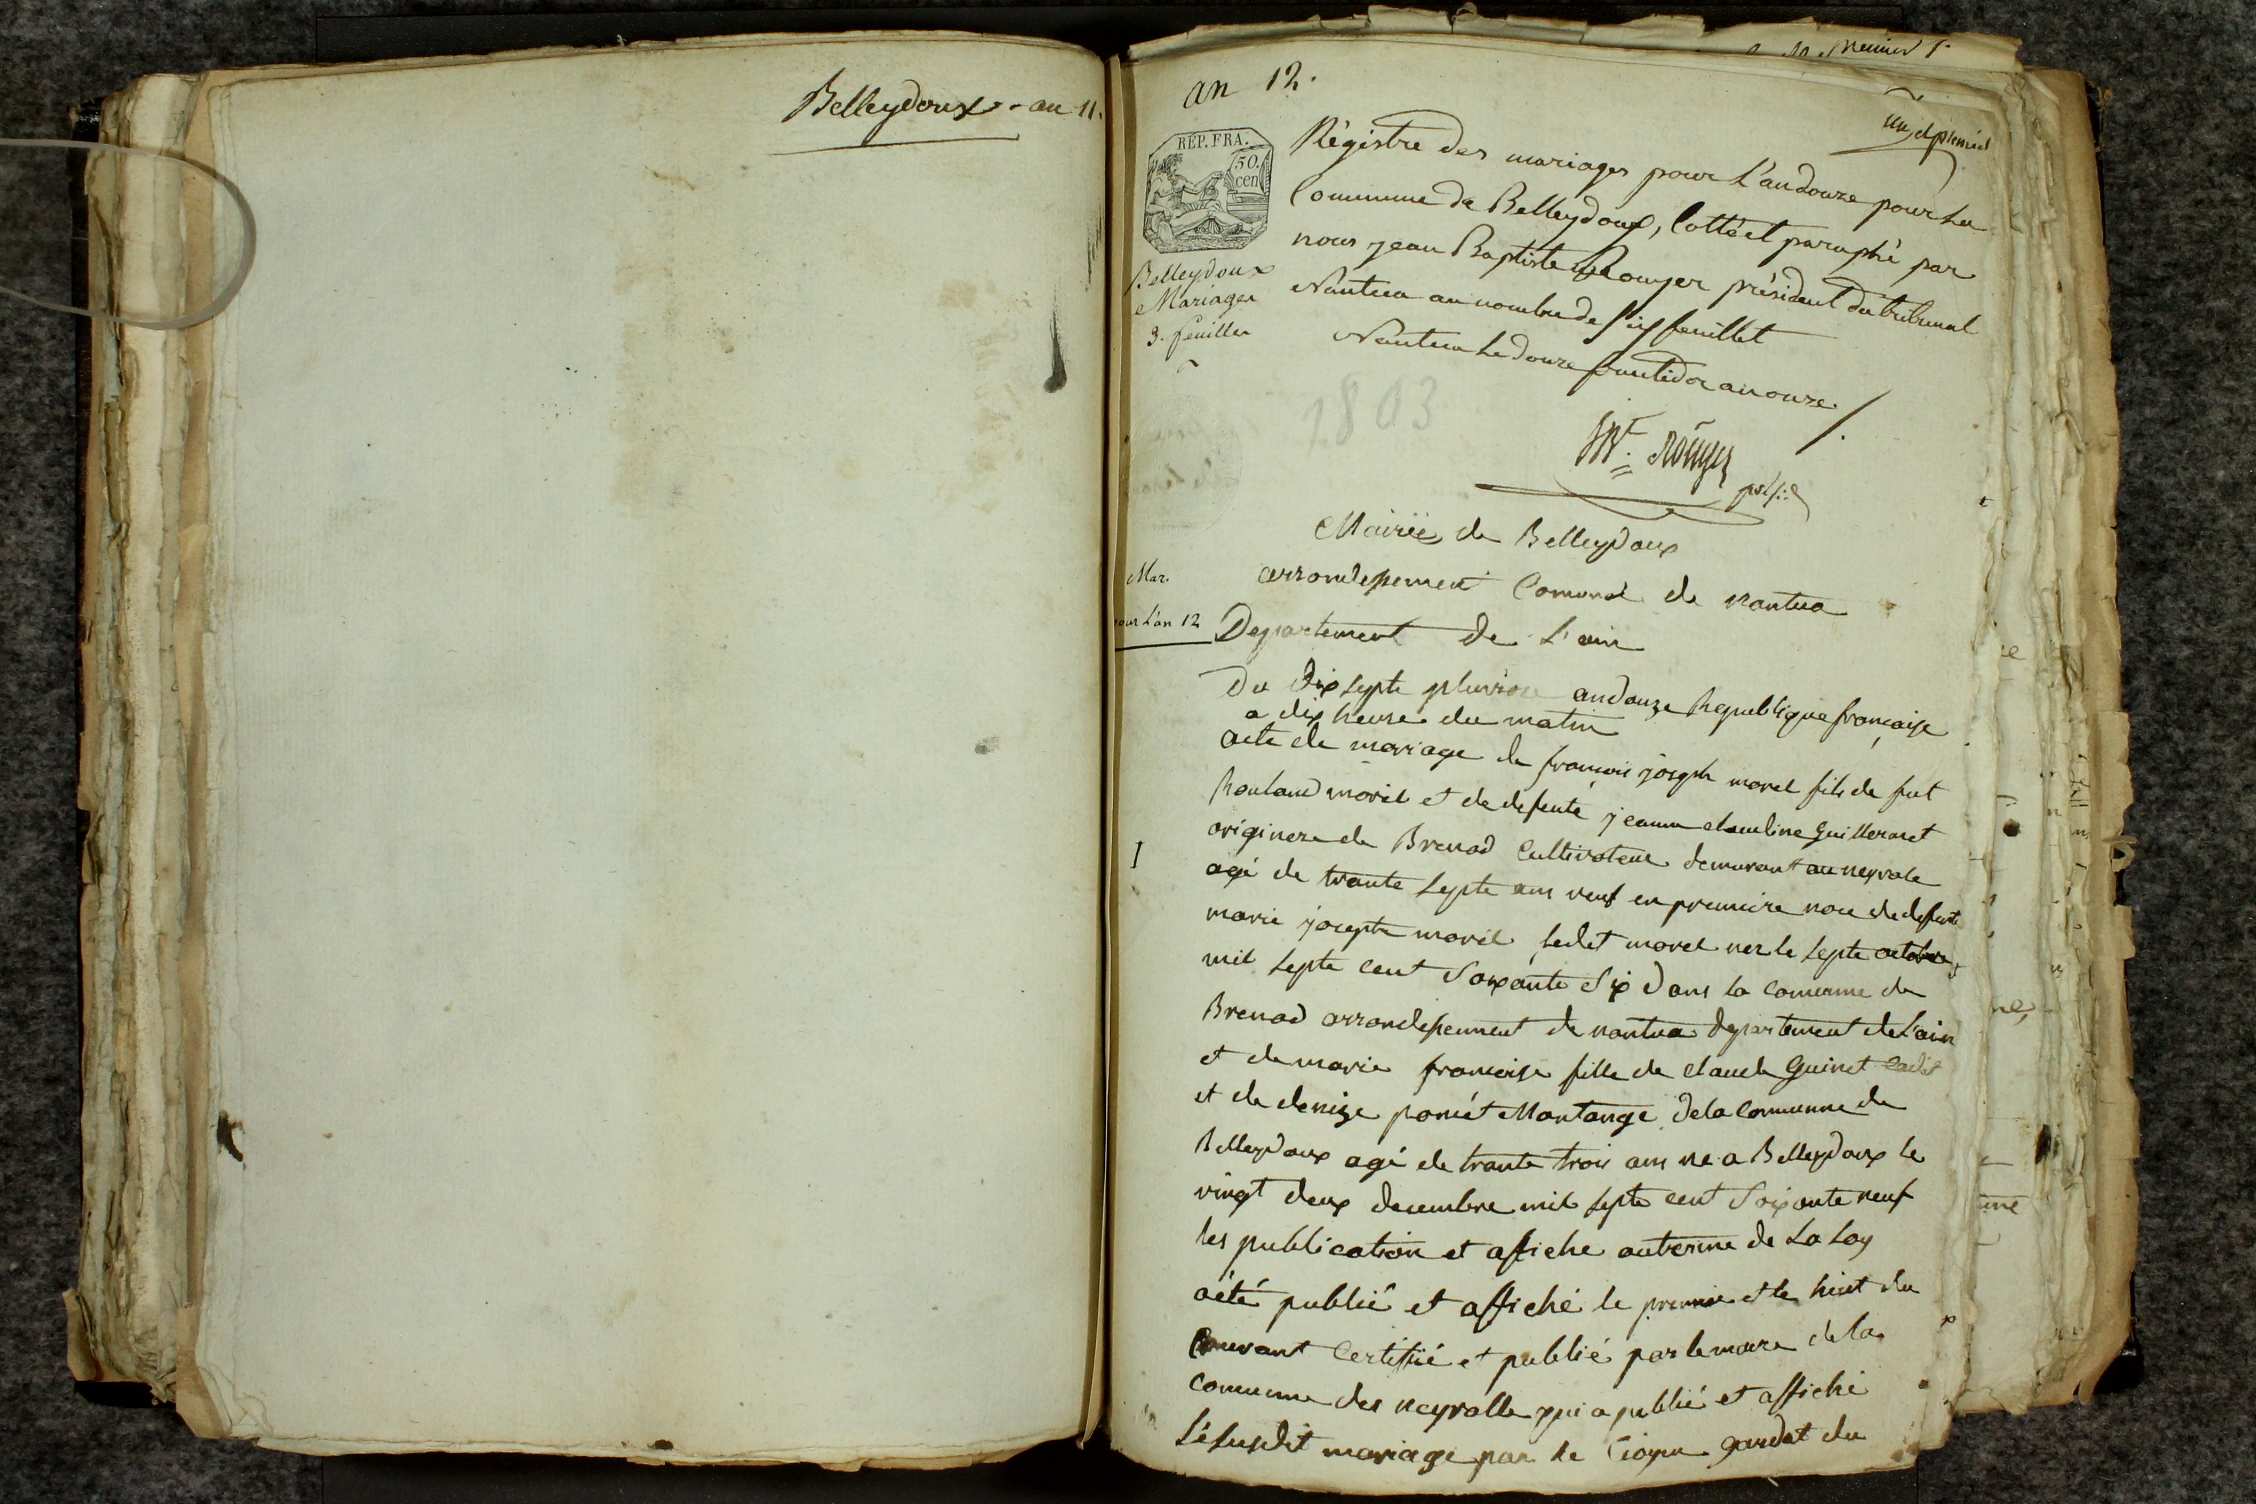 Belleydoux - an 11.
an 12.
un, et premier
REP. FRA.
50.
cen
Belleydoux
Mariages
3. feuilles
Régistre des mariages pour L'an douze pour La
Commune de Belleydoux, Cotté et paraphé par
nous jean Baptiste Rouyer président du tribunal
Nantua au nombre de six feuillet
Nantua Le douze fructidor an onze
1803
Rouyer
Mairie de Belleydoux
arrondissement Comunal de nantua
Mar.
pour L'an 12
Departement de L'ain
Du dix septe pluviose an douze Republique françaize
a dix heure du matin
acte de mariage de françois joseph morel fils de fut
Rouland morel et de defunte jeanne claudine Guillermet
originere de Brenod Cultivateur demurant au neyrole
I
agé de trante septe ans veuf en premiere noce de defunte
marie josepte morel, ledit morel nez le septe octobre
mil septe cent soixante six dans la comunne de
Brenod arrondissement de nantua departement de L'ain
et de marie françoise fille de claude Guinet Cadet
et de denize poncet Montange de la Commune de
Belleydoux agé de trante trois ans né a Belleydoux le
vingt deux decembre mil septe cent soixante neuf
les publication et afiche au terme de La Loy
a été publié et affiché le premier et le huit du
Courant Certifié et publié par le maire de la
comunne des neyrolle qui a publié et affiché
Le susdit mariage par le Citoyen gardet du